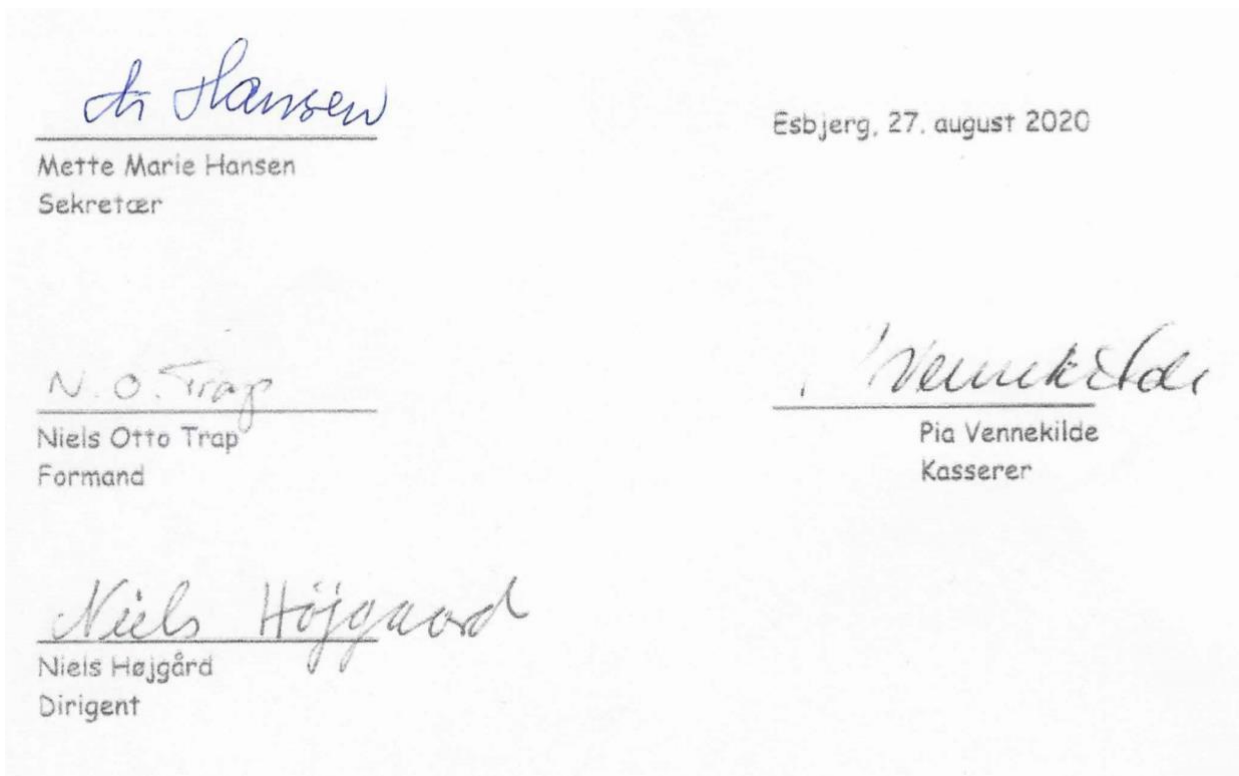 Hansen
Mette Marie Hansen
Sekretær
Esbjerg, 27. august 2020
N. O. Trap
Niels Otto Trap
Formand
Vennekilde
Pia Vennekilde
Kasserer
Niels Höjgaard
Niels Højgård
Dirigent